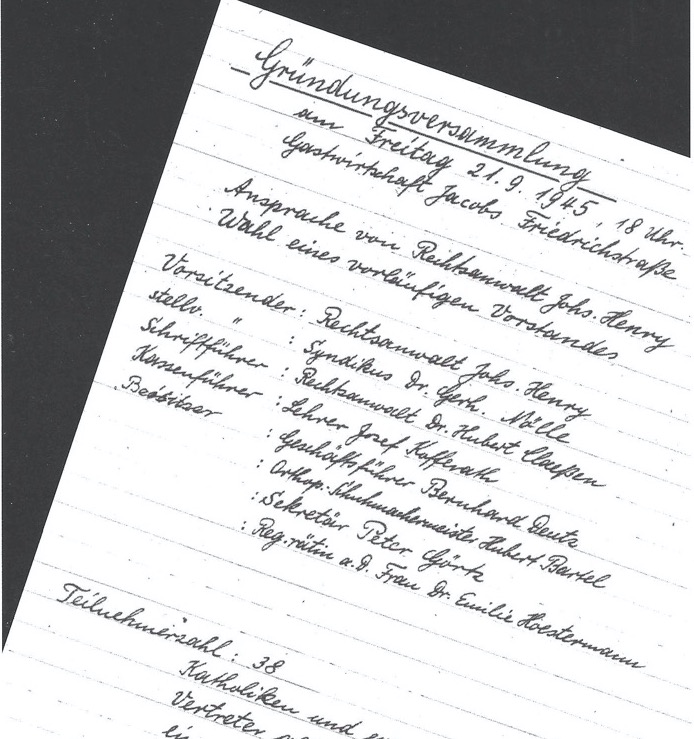 Gründungsversammlung
am Freitag 21.9.1945, 18 Uhr.
Gastwirtschaft Jacobs, Friedrichstraße
Ansprache von Rechtsanwalt Johs. Henry
Wahl eines vorläufigen Vorstandes
Vorsitzender : Rechtsanwalt Johs. Henry
stellv. " : Syndikus Dr. Gerh. Nölle
Schriftführer : Rechtsanwalt Dr. Hubert Claeßen
Kassenführer : Lehrer Josef Kofferath
Beisitzer : Geschäftsführer Bernhard Deutz
: Orthop. Schuhmachermeister Hubert Bartel
: Sekretär Peter Görtz
: Reg.rätin a.D. Frau Dr. Emilie Hoestermann
Teilnehmerzahl: 38
Katholiken und
Vertreter